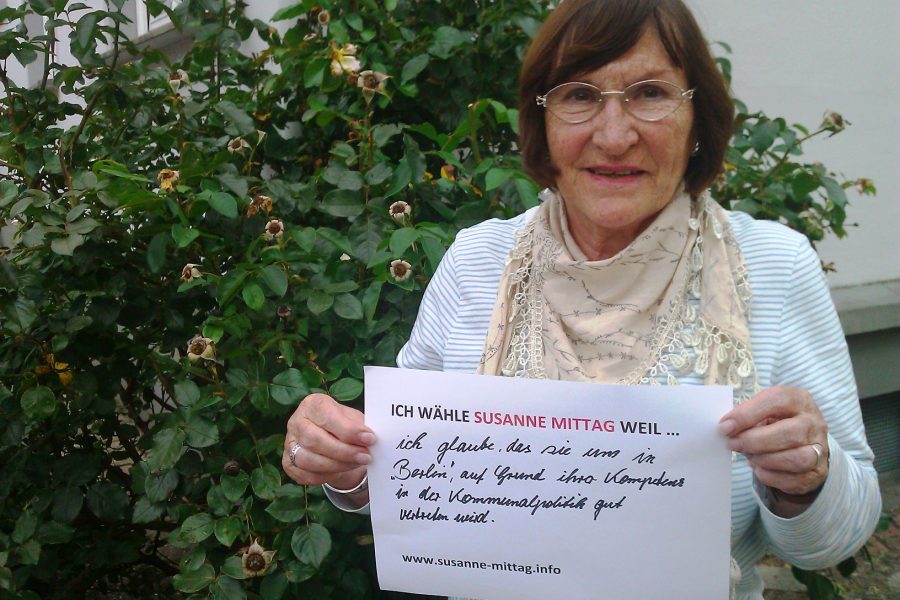 ICH WÄHLE SUSANNE MITTAG WEIL ...
ich glaube, das sie uns in
„Berlin“, auf Grund ihrer Kompetenz
in der Kommunalpolitik gut
vertreten wird.
www.susanne-mittag.info